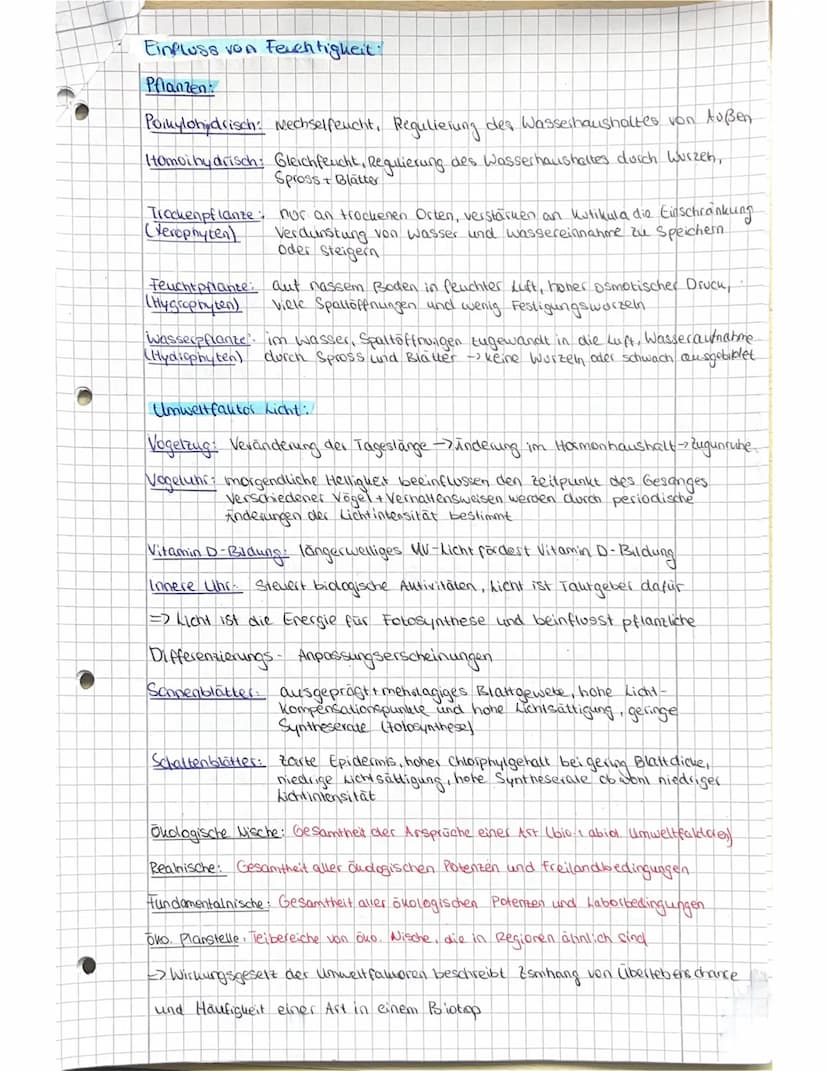 Einfluss von Feuchtigkeit:
Pflanzen:
Poikylohydrisch: Wechselfeucht, Regulierung des Wasserhaushaltes von Außen
Homoihydrisch: Gleichfeucht, Regulierung des Wasserhaushaltes durch Wurzeln,
Spross + Blätter
Trockenpflanze: nur an trockenen Orten, verstärken an Kutikula die Einschränkung
(Xerophyten) Verdunstung von Wasser und Wassereinnahme zu Speichern
oder steigern
Feuchtpflanze: auf nassem Boden in feuchter Luft, hoher osmotischer Druck,
(Hygrophyten) viele Spaltöffnungen und wenig Festigungswurzeln
Wasserpflanze: im Wasser, Spaltöffnungen zugewandt in die Luft, Wasseraufnahme
(Hydrophyten) durch Spross und Blätter -> keine Wurzeln oder schwach ausgebildet
Umweltfaktor Licht:
Vogelzug: Veränderung der Tageslänge -> Änderung im Hormonhaushalt -> Zugunruhe
Vogeluhr: morgendliche Helligkeit beeinflussen den Zeitpunkt des Gesanges
verschiedener Vögel + Verhaltensweisen werden durch periodische
Änderungen der Lichtintensität bestimmt
Vitamin D-Bildung: längerwelliges UV-Licht fördert Vitamin D-Bildung
Innere Uhr: Steuert biologische Aktivitäten, Licht ist Taktgeber dafür
=> Licht ist die Energie für Fotosynthese und beinflusst pflanzliche
Differenzierungs- Anpassungserscheinungen
Sonnenblätter: ausgeprägt + mehrlagiges Blattgewebe, hohe Licht-
kompensationspunkte und hohe Lichtsättigung, geringe
Syntheserate (Fotosynthese)
Schattenblätter: Zarte Epidermis, hoher Chlorophylgehalt bei gering Blattdicke,
niedrige Lichtsättigung, hohe Syntheserate niedriger
Lichtintensität
Ökologische Nische: Gesamtheit der Ansprüche einer Art (bio. + abiot. Umweltfaktoren)
Realnische: Gesamtheit aller ökologischen Potenzen und Freilandbedingungen
Fundamentalnische: Gesamtheit aller ökologischen Potenzen und Laborbedingungen
öko. Planstelle: Teibereiche von öko. Nische, die in Regionen ähnlich sind
=> Wirkungsgesetz der Umweltfaktoren beschreibt Zsmhang von Überlebenschance
und Häufigkeit einer Art in einem Biotop